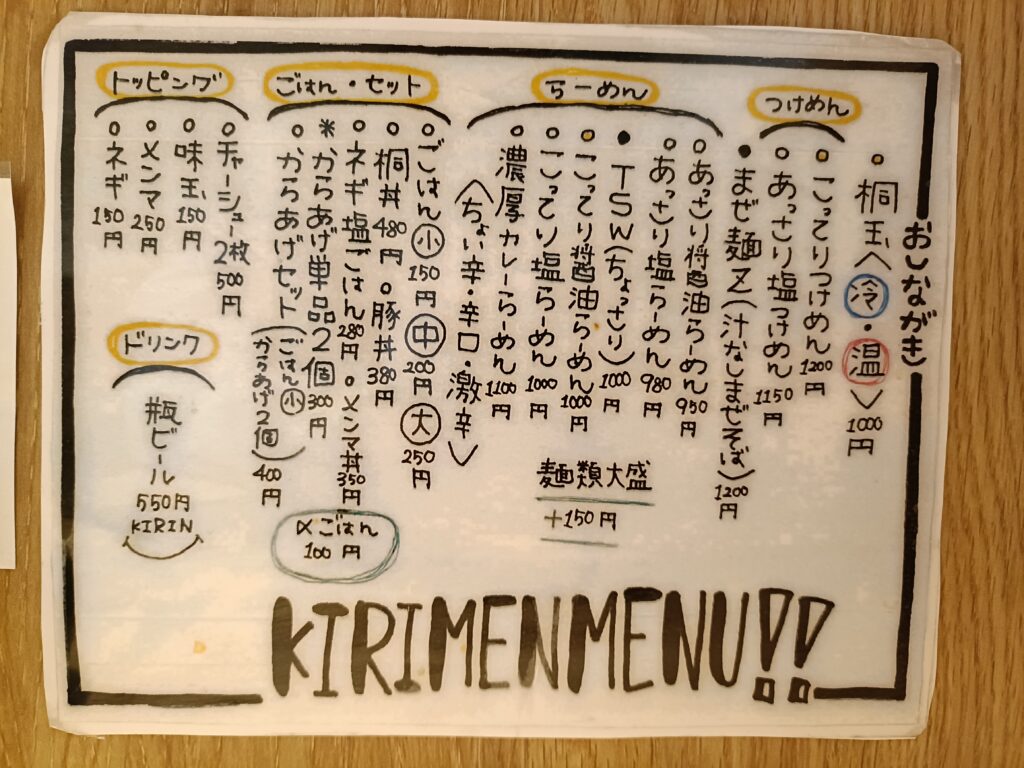 おしながき
桐玉〈冷・温〉1000円
つけめん
こってりつけめん1200円
あっさり塩つけめん1150円
まぜ麺Z(汁なしまぜそば)1200円
らーめん
あっさり醤油らーめん950円
あっさり塩らーめん980円
TSW(ちょっさり)1000円
こってり醤油らーめん1000円
こってり塩らーめん1000円
濃厚カレーらーめん1100円
〈ちょい辛・辛口・激辛〉
麺類大盛
+150円
ごはん・セット
ごはん小150円 中200円 大250円
桐丼480円 豚丼380円
ネギ塩ごはん280円 メンマ丼350円
*からあげ単品2個300円
からあげセット(ごはん小 からあげ2個)400円
〆ごはん
100円
トッピング
チャーシュー2枚500円
味玉150円
メンマ250円
ネギ150円
ドリンク
瓶ビール
550円
KIRIN
KIRIMENMENU!!